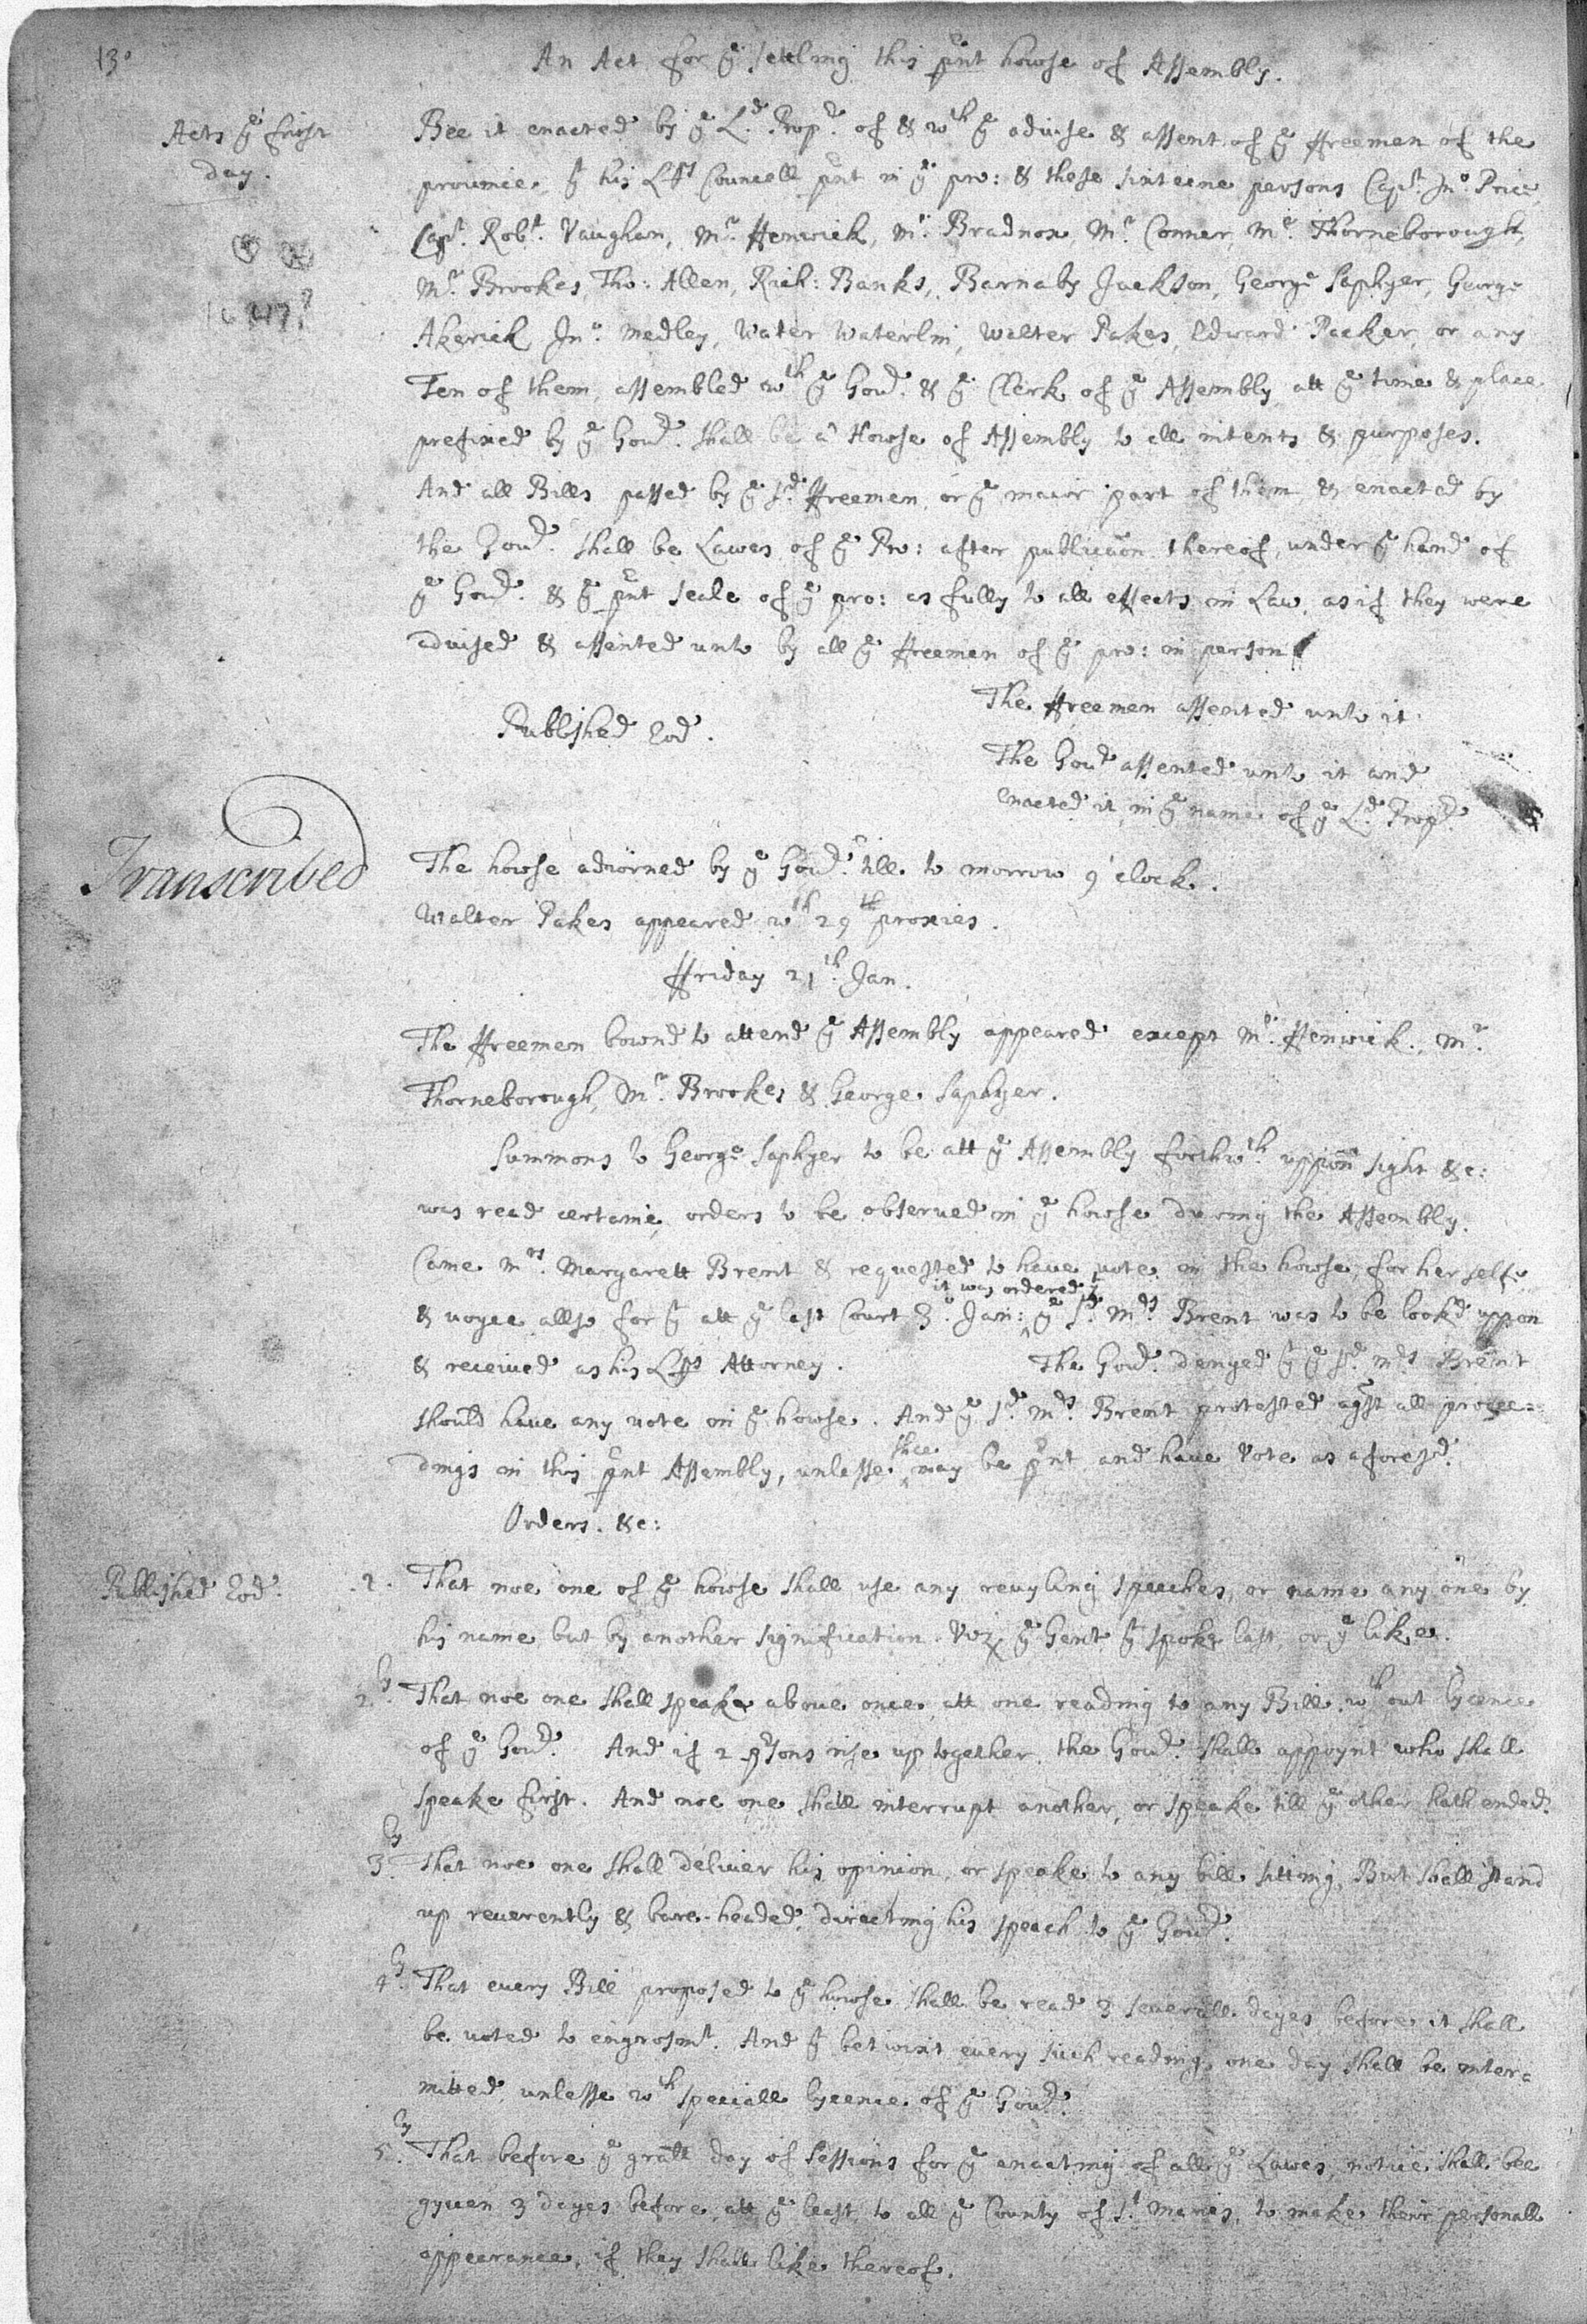 130
An Act for yᵉ settling this pñt howse of Assembly.
Acts yᵉ first
day.
Bee it enacted by yᵉ Lᵈ. Propʳ. of & wᵗʰ yᵉ aduise & assent of yᵉ ffreemen of the
prouince, yᵗ his Lᵖˢ Councell pñt in yᵉ pro: & these sixteene persons Capᵗ. Jnᵒ. Price,
Capᵗ. Robᵗ. Vaughan, Mʳ. ffenwick, Mʳ. Bradnox, Mʳ. Conner, Mʳ. Thorneborough,
Mʳ. Brookes, Tho: Allen, Rich: Banks, Barnaby Jackson, George Saphyer, George
Akerick Jnᵒ. Medley, Water Waterlin, Walter Pakes, Edward Packer, or any
Ten of them, assembled wᵗʰ yᵉ Gouʳ. & yᵉ Clerk of yᵉ Assembly att yᵉ time & place
prefixed by yᵉ Gouʳ. shall be a Howse of Assembly to all intents & purposes.
And all Bills passed by yᵉ sᵈ. ffreemen, or yᵉ maior part of them & enacted by
the Gouʳ. shall be Lawes of yᵉ Pro: after publicãon thereof, under yᵉ hand of
yᵉ Gouʳ. & yᵉ pñt seale of yᵉ pro: as fully to all effects in Law, as if they were
aduised & assented unto by all yᵉ ffreemen of yᵉ pro: in person
The ffreemen assented unto it
Published Eod.
The Gouʳ assented unto it and
enacted it in yᵉ name of yᵉ Lᵈ. Propʳ.
Transcribed
The howse adiorned by yᵉ Gouʳ. till to morrow 9 clock.
Walter Pakes appeared wᵗʰ 29ᵗʰ proxies.
ffriday 21ᵗʰ. Jan.
The ffreemen bownd to attend yᵉ Assembly appeared except Mʳ. ffenwick, Mʳ.
Thorneborough, Mʳ. Brookes & George Saphyer.
Summons to George Saphyer to be att yᵉ Assembly forthwᵗʰ. uppon sight &c:
was read certaine orders to be obserued in yᵉ howse during the Assembly.
Came Mʳˢ. Margarett Brent & requested to haue vote in the howse, for her selfe
it was ordered yᵗ
& voyce allso for yᵗ att yᵉ last Court 3ᵒ. Jan: yᵉ sᵈ. Mʳˢ Brent was to be look'd uppon
& receiued as his Lᵖˢ Attorney. The Gouʳ. denyed yᵗ yᵉ sᵈ. Mʳˢ Brent
should haue any vote in yᵉ howse. And yᵉ sᵈ. Mʳˢ. Brent protested agᵗ all procee=
shee
dings in this pñt Assembly, unlesse may be pñt and haue Vote as aforesᵈ.
Orders. &c:
Published Eod.
1. That noe one of yᵉ howse shall use any reuyling speeches, or name any one by
his name but by another signification. Viz yᵉ Gent yᵗ spoke last, or yᵉ like.
2ˡʸ. That noe one shall speake aboue once, att one reading to any Bill, wᵗʰout lycence
of yᵉ Gouʳ. And if 2 psons rise up together, the Gouʳ. shall appoynt who shall
speake first. And noe one shall interrupt another, or speake till yᵉ other hath ended.
3ˡʸ. That noe one shall deliuer his opinion, or speake to any bill sitting, But shall stand
up reuerently & bare-headed, directing his speach to yᵉ Gouʳ.
4ˡʸ. That euery Bill proposed to yᵉ howse shall be read 3 seuerall dayes before it shall
be voted to engrosmᵗ. And yᵗ betwixt euery such reading, one day shall be inter=
mitted, unlesse wᵗʰ speciall lycence of yᵉ Gouʳ.
5ˡʸ. That before yᵉ grãll day of Sessions for yᵉ enacting of all yᵉ Lawes, notice shall bee
gyuen 3 dayes before, att yᵉ least, to all yᵉ County of Sᵗ. Maries, to make their personall
appearance, if they shall like thereof.